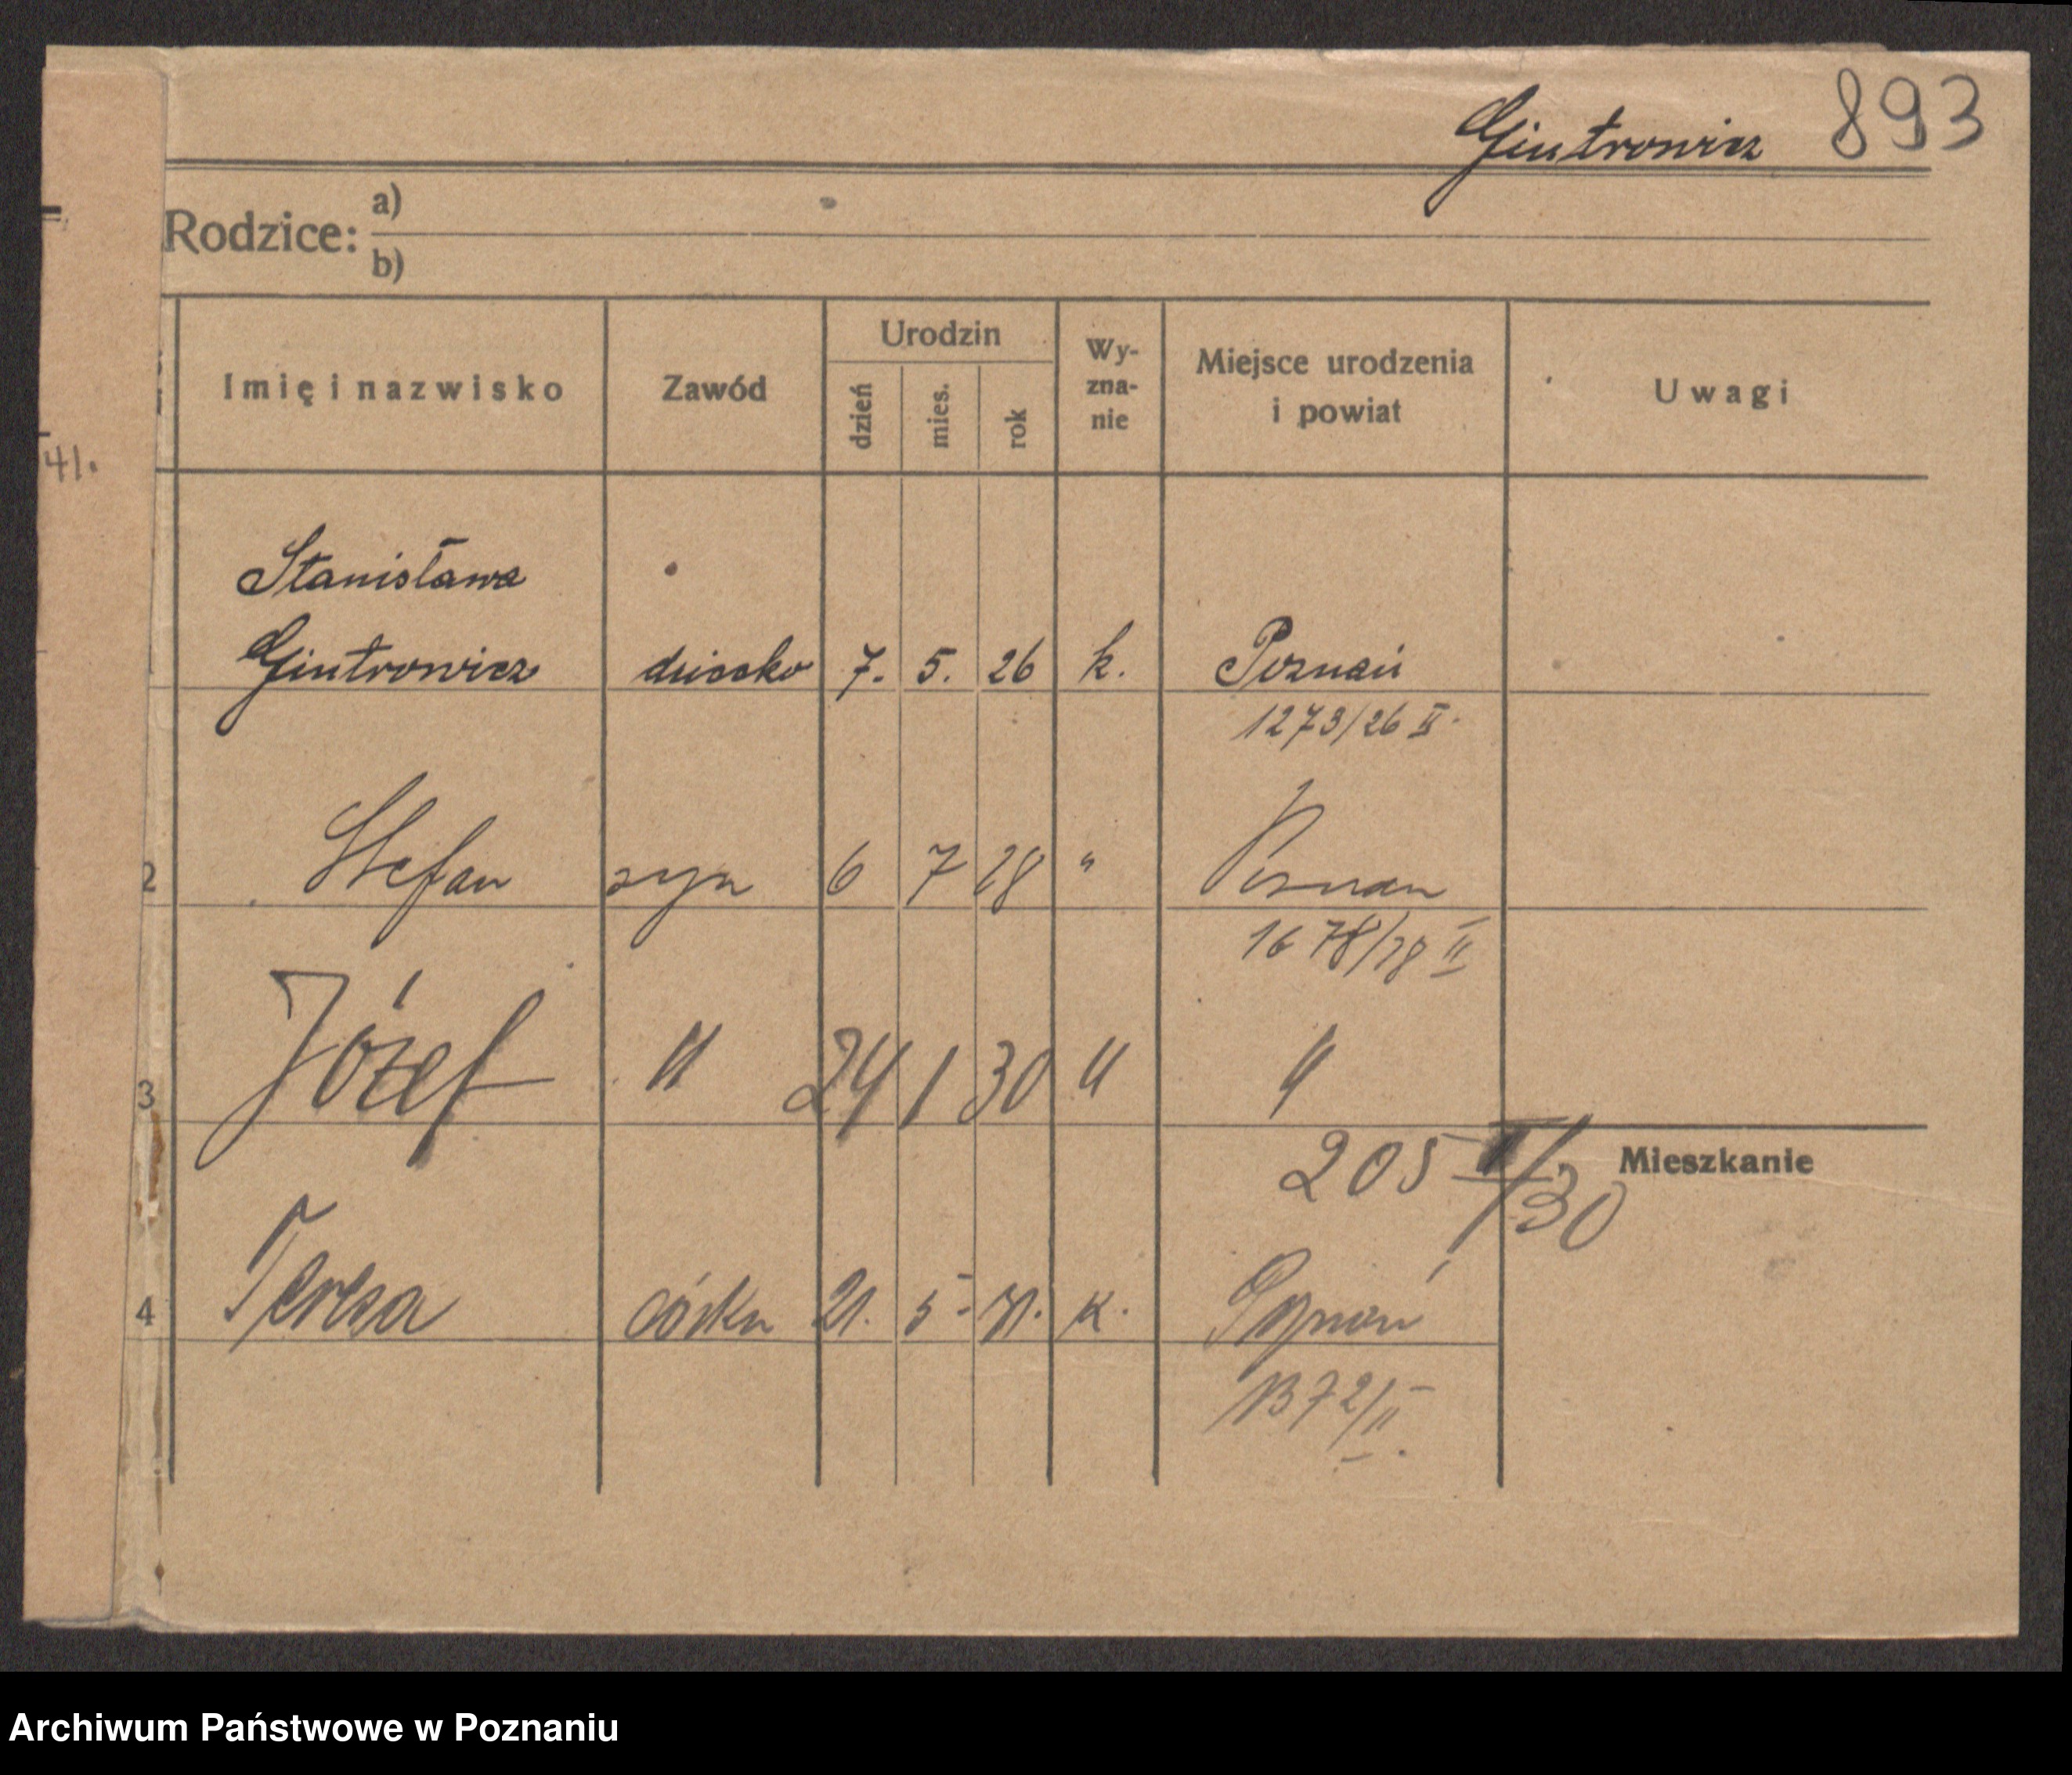 Gintrowicz 893
Rodzice: a)
b)
Imię i nazwisko
Zawód
Urodzin
dzień
mies.
rok
Wy-
zna-
nie
Miejsce urodzenia
i powiat
Uwagi
41.
Stanisława
Gintrowicz dziecko 7. 5. 26 k. Poznań
1273/26 II.
2 Stefan syn 6 7 28 " Poznan
1678/28 II
3 Józef " 24 1 30 " "
205 II/30
Mieszkanie
4 Teresa córka 21. 5. 31. k. Poznań
1372/II.
Archiwum Państwowe w Poznaniu